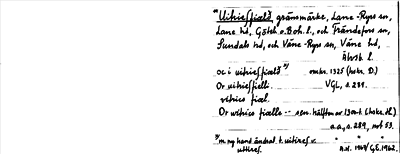 "Vitriesfiæld gränsmärke, Lane-Ryrs sn,
Lane hd, Göteb. o. Boh. l., och Frändefors sn,
Sundals hd, och Väne-Ryrs sn, Väne hd,
Älvsb. l.
oc i vitriesfiæld *) omkr. 1325 (hskr. D.)
Or vitriesfielli. VGL, s. 289.
vitrics fiæl.
Or vitrics fialle -- sen. hälften av 1300-t. (hskr.
a.a., s. 289, not 53.
*) m. ny hand ändrat t. uitires v.
uittires. R.H. 1948/G.E. 1962.